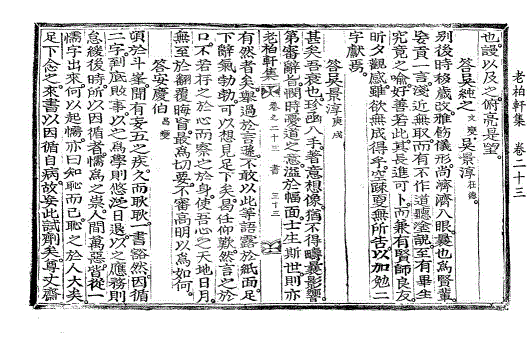 老柏軒集 卷二十三
也謾以及之俯亮是望
答吳純之 吳景淳
別後時移歲改雅飭儀形尚濟濟入眼曩也爲賢輩
妄貢一言淺近無取而有不作道聽塗說至有畢生
究竟之喩好善若此其長進可卜而兼有賢師良友
昕夕觀感雖欲無成得乎空疎更無所告以加勉二
字獻焉
答吳景淳 庚戌
甚矣吾衰也珍函入手著意想像猶不得疇曩影響
第審辭旨憫時憂道之意溢於幅面士生斯世則亦
老柏軒集 卷之二十三 書 三十三
有然者矣過於退不敢以此等語露於紙面足
下辭氣勃勃可以想見足下矣曷任仰歎然言之於
口不若存之於心而察之於身使吾心之天地日月
無至於翻覆晦盲最爲切要不審高明以爲如何
答安慶伯 昌燮
頃於斗峯聞有妄五之疾久而耿耿一書豁然因循
二字到底敗事以之爲學則悠泛日退以之應務則
怠緩後時所以因循者懦爲之祟人間萬惡皆從一
懦字出來何以起懦亦曰知恥而已恥之於人大矣
足下念之來書以因循自病故妄此試劑矣尊丈齋